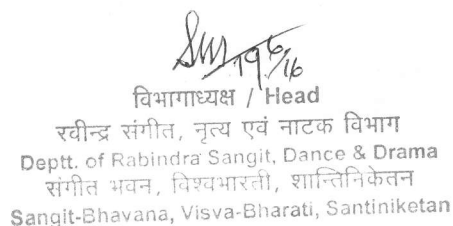 19/6/16
विभागाध्यक्ष / Head
रवीन्द्र संगीत, नृत्य एवं नाटक विभाग
Deptt. of Rabindra Sangit, Dance & Drama
संगीत भवन, विश्वभारती, शान्तिनिकेतन
Sangit-Bhavana, Visva-Bharati, Santiniketan